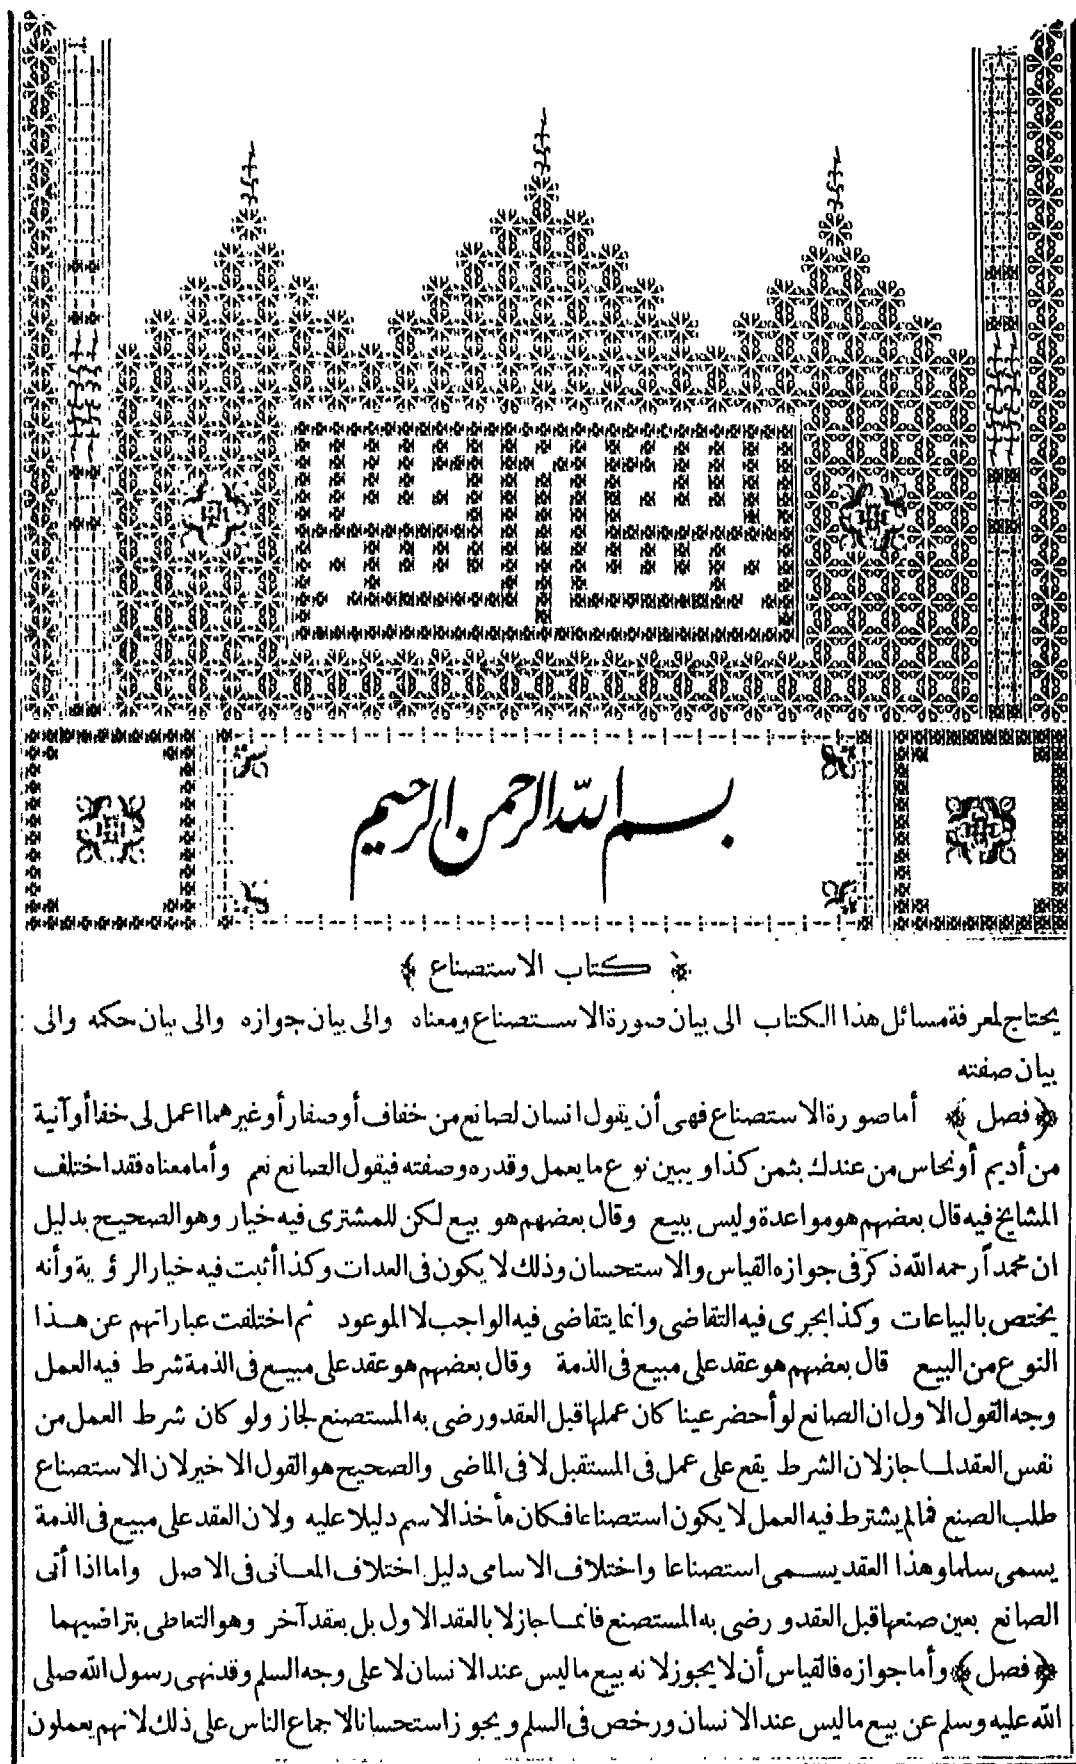 بسم الله الرحمن الرحيم
﴿ كتاب الاستصناع ﴾
يحتاج لمعرفة مسائل هذا الكتاب الى بيان صورة الاستصناع ومعناه والى بيان جوازه والى بيان حكمه والى
بيان صفته
﴿ فصل ﴾ أما صورة الاستصناع فهى أن يقول انسان لصانع من خفاف أو صفار أو غيرهما اعمل لى خفا أو آنية
من أديم أو نحاس من عندك بثمن كذا ويبين نوع ما يعمل وقدره وصفته فيقول الصانع نعم وأما معناه فقد اختلف
المشايخ فيه قال بعضهم هو مواعدة وليس ببيع وقال بعضهم هو بيع لكن للمشترى فيه خيار وهو الصحيح بدليل
ان محمدا رحمه الله ذكر فى جوازه القياس والاستحسان وذلك لا يكون فى العدات وكذا أثبت فيه خيار الرؤية وأنه
يختص بالبياعات وكذا يجرى فيه التقاضى وانما يتقاضى فيه الواجب لا الموعود ثم اختلفت عباراتهم عن هذا
النوع من البيع قال بعضهم هو عقد على مبيع فى الذمة وقال بعضهم هو عقد على مبيع فى الذمة شرط فيه العمل
وجه القول الاول ان الصانع لو أحضر عينا كان عملها قبل العقد ورضى به المستصنع لجاز ولو كان شرط العمل من
نفس العقد لما جاز لان الشرط يقع على عمل فى المستقبل لا فى الماضى والصحيح هو القول الاخير لان الاستصناع
طلب الصنع فما لم يشترط فيه العمل لا يكون استصناعا فكان مأخذ الاسم دليلا عليه ولان العقد على مبيع فى الذمة
يسمى سلما وهذا العقد يسمى استصناعا واختلاف الاسامى دليل اختلاف المعانى فى الاصل واما اذا أتى
الصانع بعين صنعها قبل العقد ورضى به المستصنع فانما جاز لا بالعقد الاول بل بعقد آخر وهو التعاطى بتراضيهما
﴿ فصل ﴾ وأما جوازه فالقياس أن لا يجوز لانه بيع ما ليس عند الانسان لا على وجه السلم وقد نهى رسول الله صلى
الله عليه وسلم عن بيع ما ليس عند الانسان ورخص فى السلم ويجوز استحسانا لاجماع الناس على ذلك لانهم يعملون